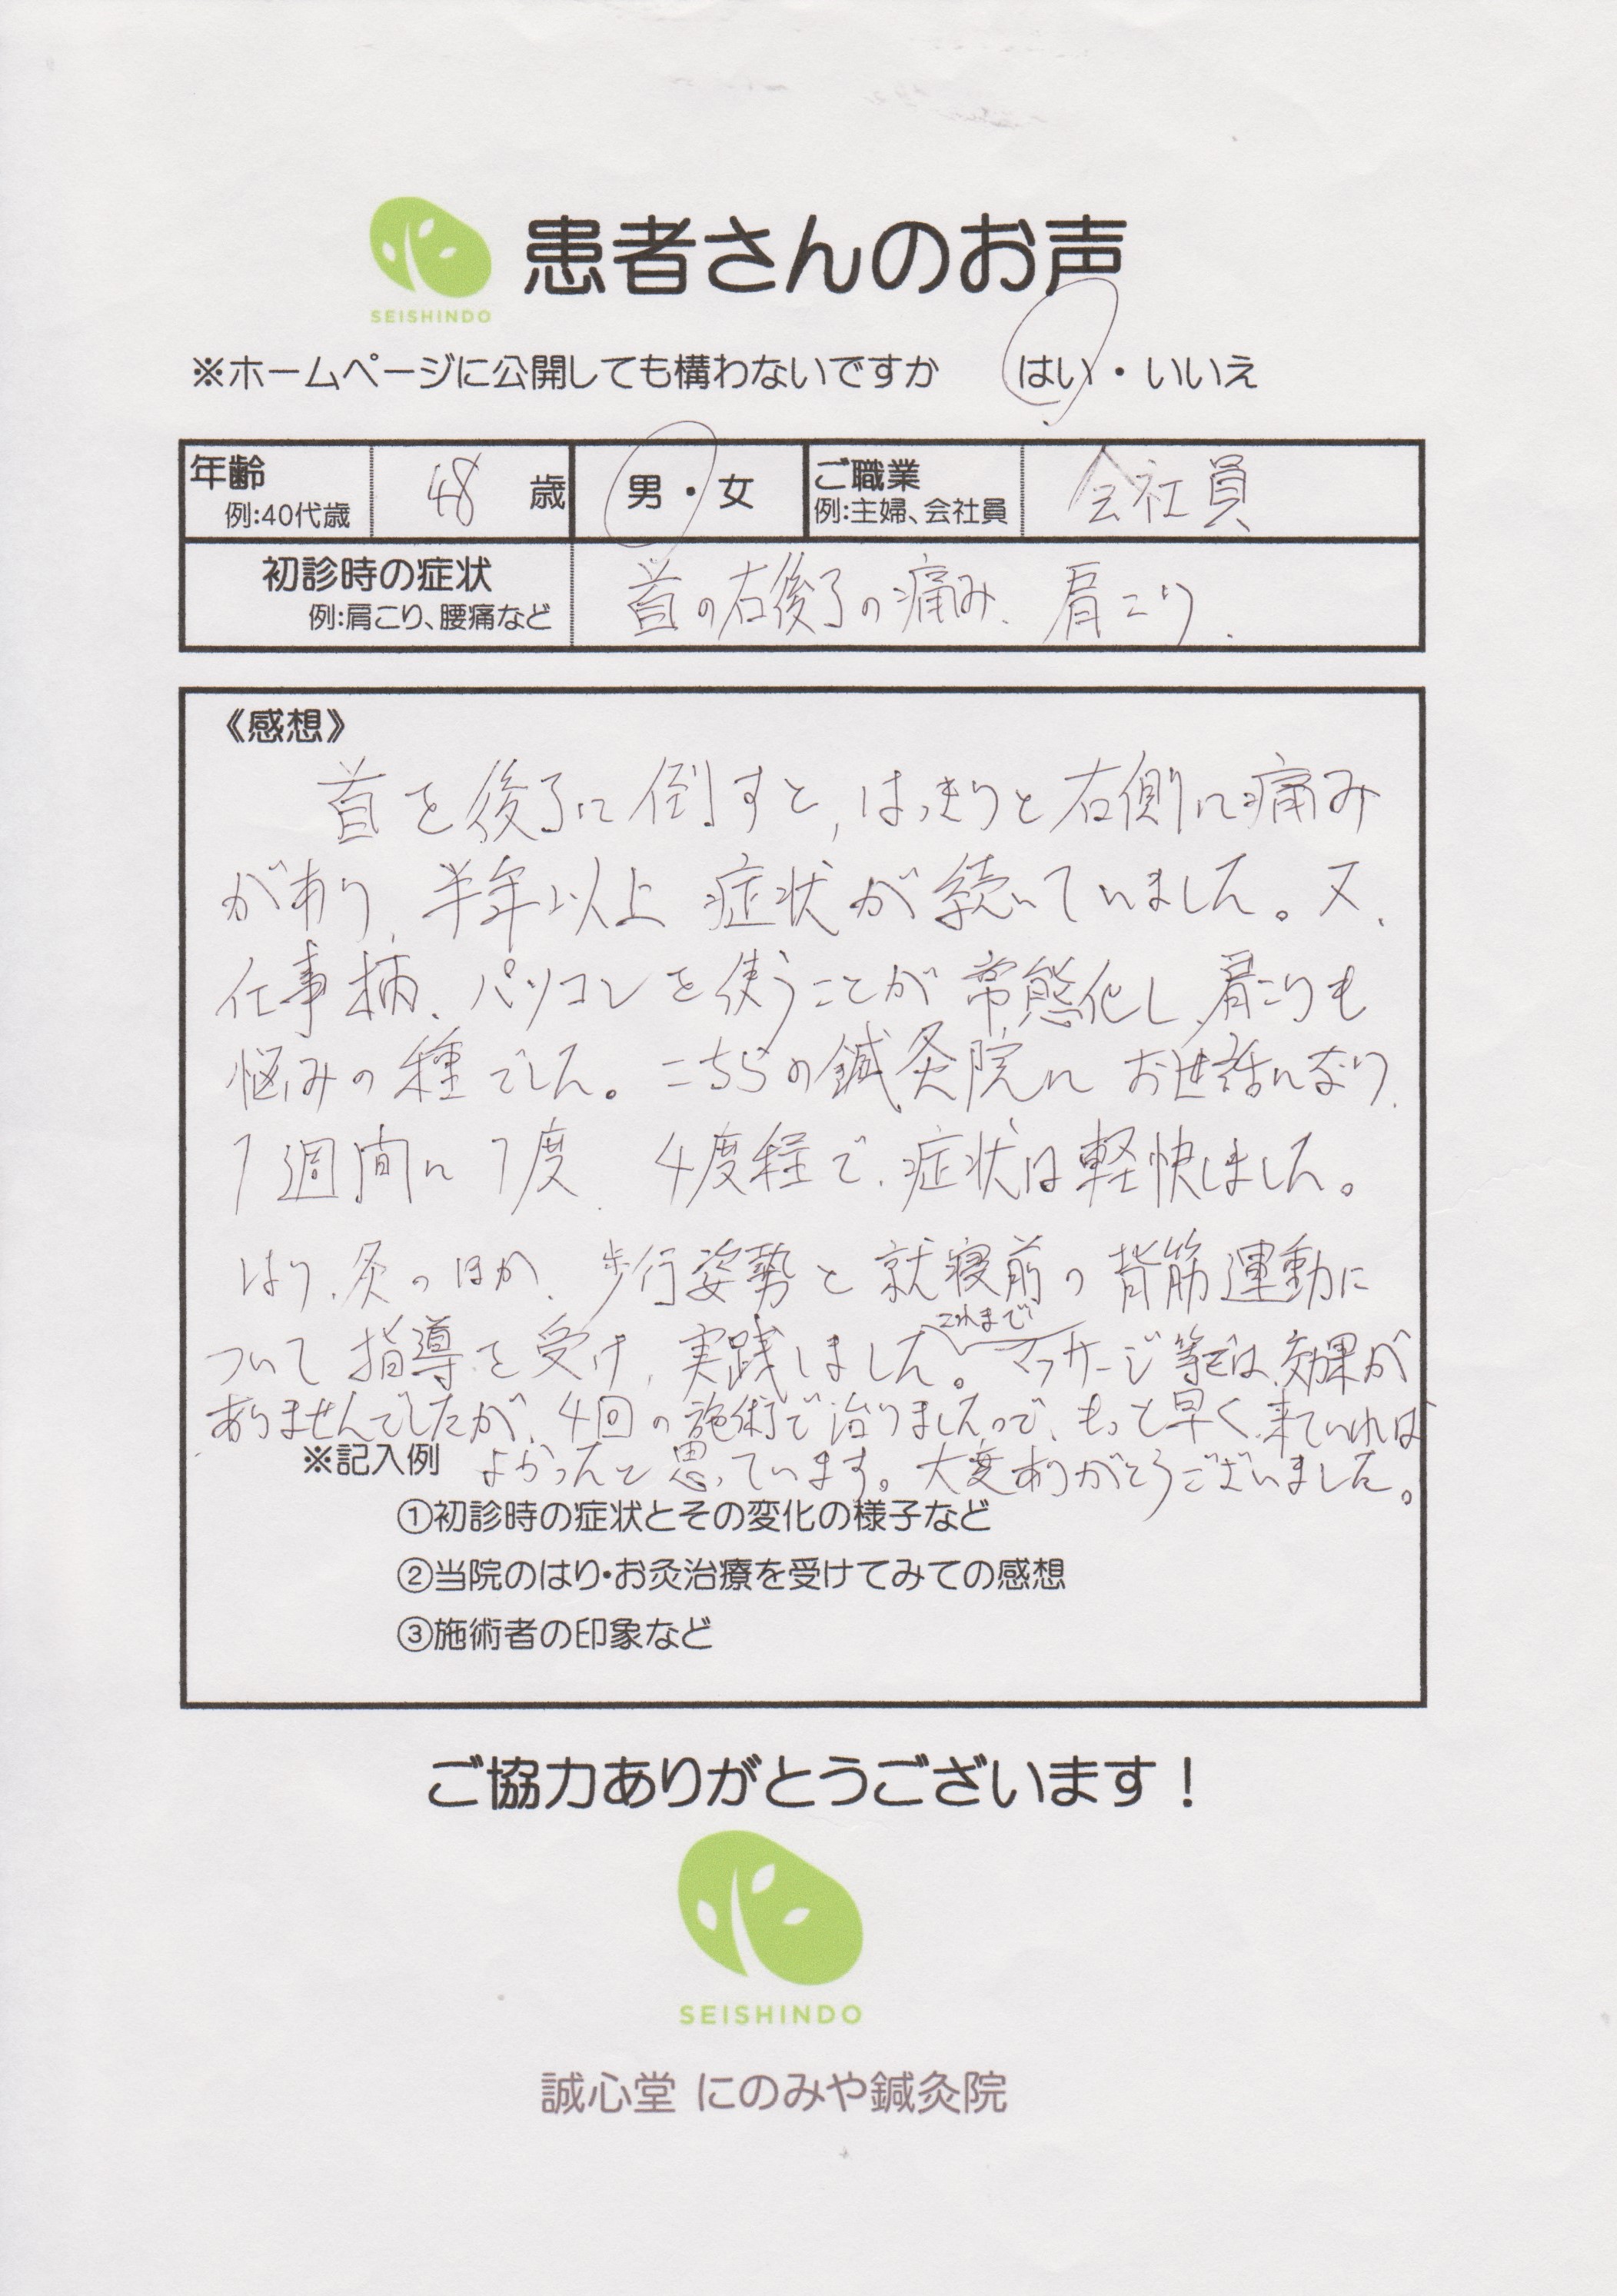 患者さんのお声
SEISHINDO
※ホームページに公開しても構わないですか はい・いいえ
年齢 48 歳 男・女 ご職業 会社員
例:40代歳 例:主婦、会社員
初診時の症状 首の右後ろの痛み、肩こり、
例:肩こり、腰痛など
《感想》
首を後ろに倒すと、はっきりと右側に痛み
があり、半年以上 症状が続いていました。又、
仕事柄、パソコンを使うことが常態化し、肩こりも
悩みの種でした。こちらの鍼灸院に お世話になり、
1週間に1度、4度程で、症状は軽快しました。
はり、灸のほか、歩行姿勢と就寝前の背筋運動に
これまで
ついて指導を受け、実践しました。マッサージ等では、効果が
ありませんでしたが、4回の施術で治りましたので、もっと早く来ていれば
※記入例 よかったと思っています。大変ありがとうございました。
①初診時の症状とその変化の様子など
②当院のはり・お灸治療を受けてみての感想
③施術者の印象など
ご協力ありがとうございます!
SEISHINDO
誠心堂 にのみや鍼灸院